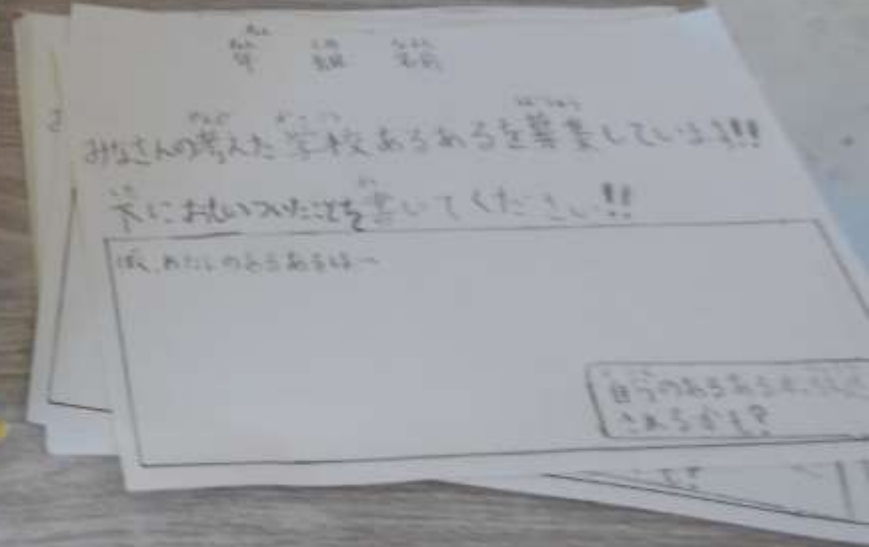 年 組 名前
みなさんの考えた学校あるあるを募集しています!!
下におもいついたことを書いてください!!
ぼく、わたしのあるあるは〜
自分のあるあるが
されるかも?